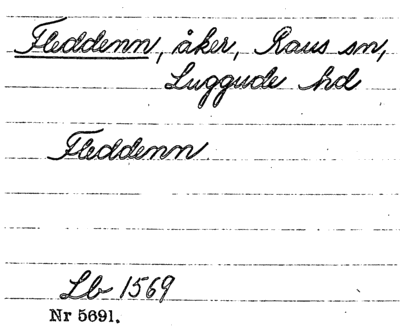 Fleddenn, åker, Raus sn,
Luggude hd
Fleddenn
Lb 1569
Nr 5691.